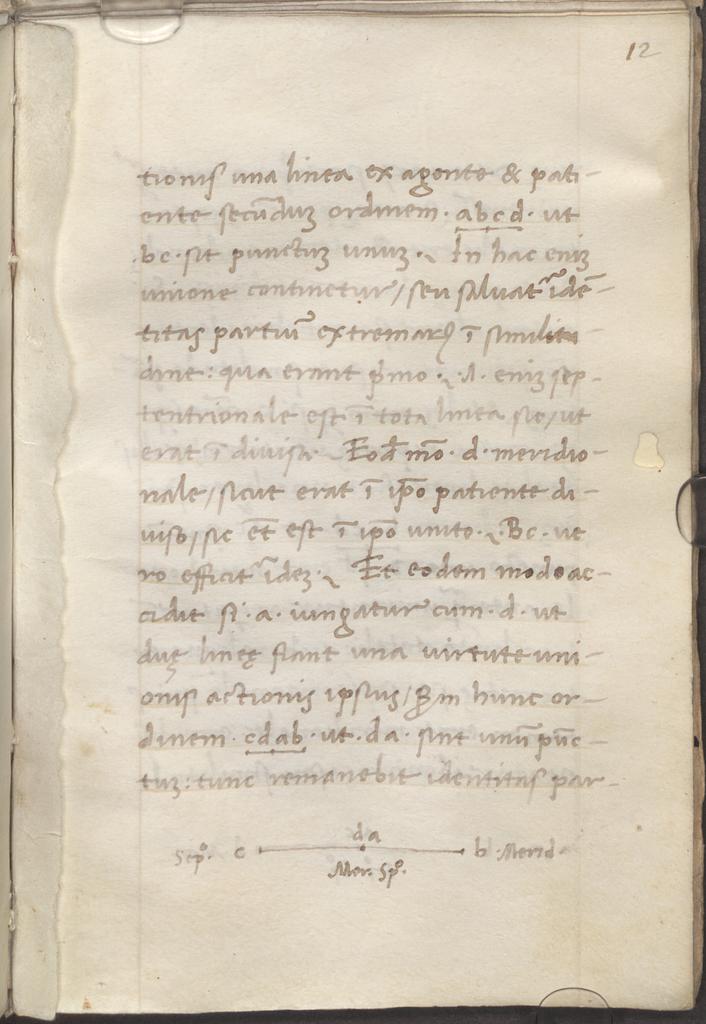 12
tionis una linea ex agente & pati-
ente secūduȝ ordinem . abcd . ut
.bc. sit punctuȝ unuȝ . In hac eniȝ
unione continetur / seu saluat᷑ idē-
titas partiū extremarꝝ ī simili-
dine : qua erant p̄mo . .A. eniȝ sep-
tentrionale est ī tota linea sic / ut
erat ī diuisa . Eod̄ mō . d . meridio-
nale / sicut erat ī ip̄o patiente di-
uiso / sic ēt est ī ip̄o unito . .Bc. ue
ro efficit᷑ ideȝ . Et eodem modo ac-
cidit si .a. iungatur cum .d. ut
duę lineę fiant una uirtute uni-
onis actionis ipsius / s̄m hunc or-
dinem . cdab . ut . da . sint unū pūc-
tuȝ : tunc remanebit identitas par-
da
Sepº. c b . Merid.
Mer. Spº.